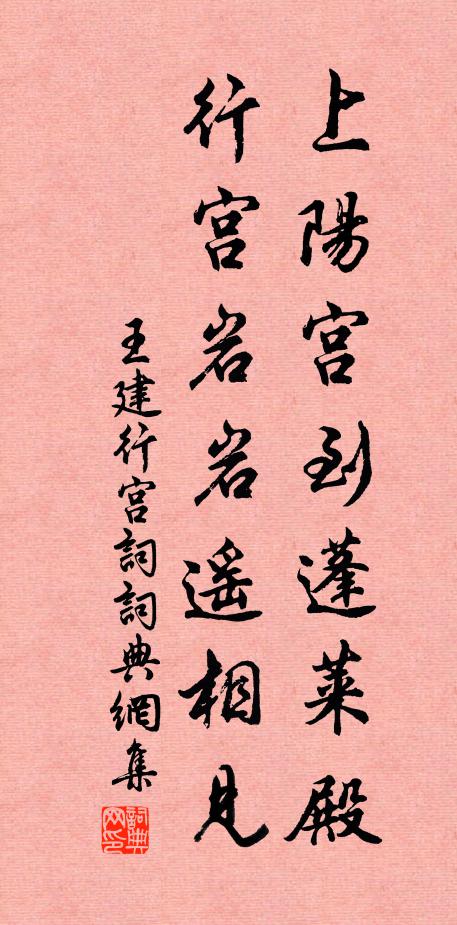 上陽宮到蓬萊殿
行宮岩岩遥相見
王建行宮詞詞典網集
詞典网印